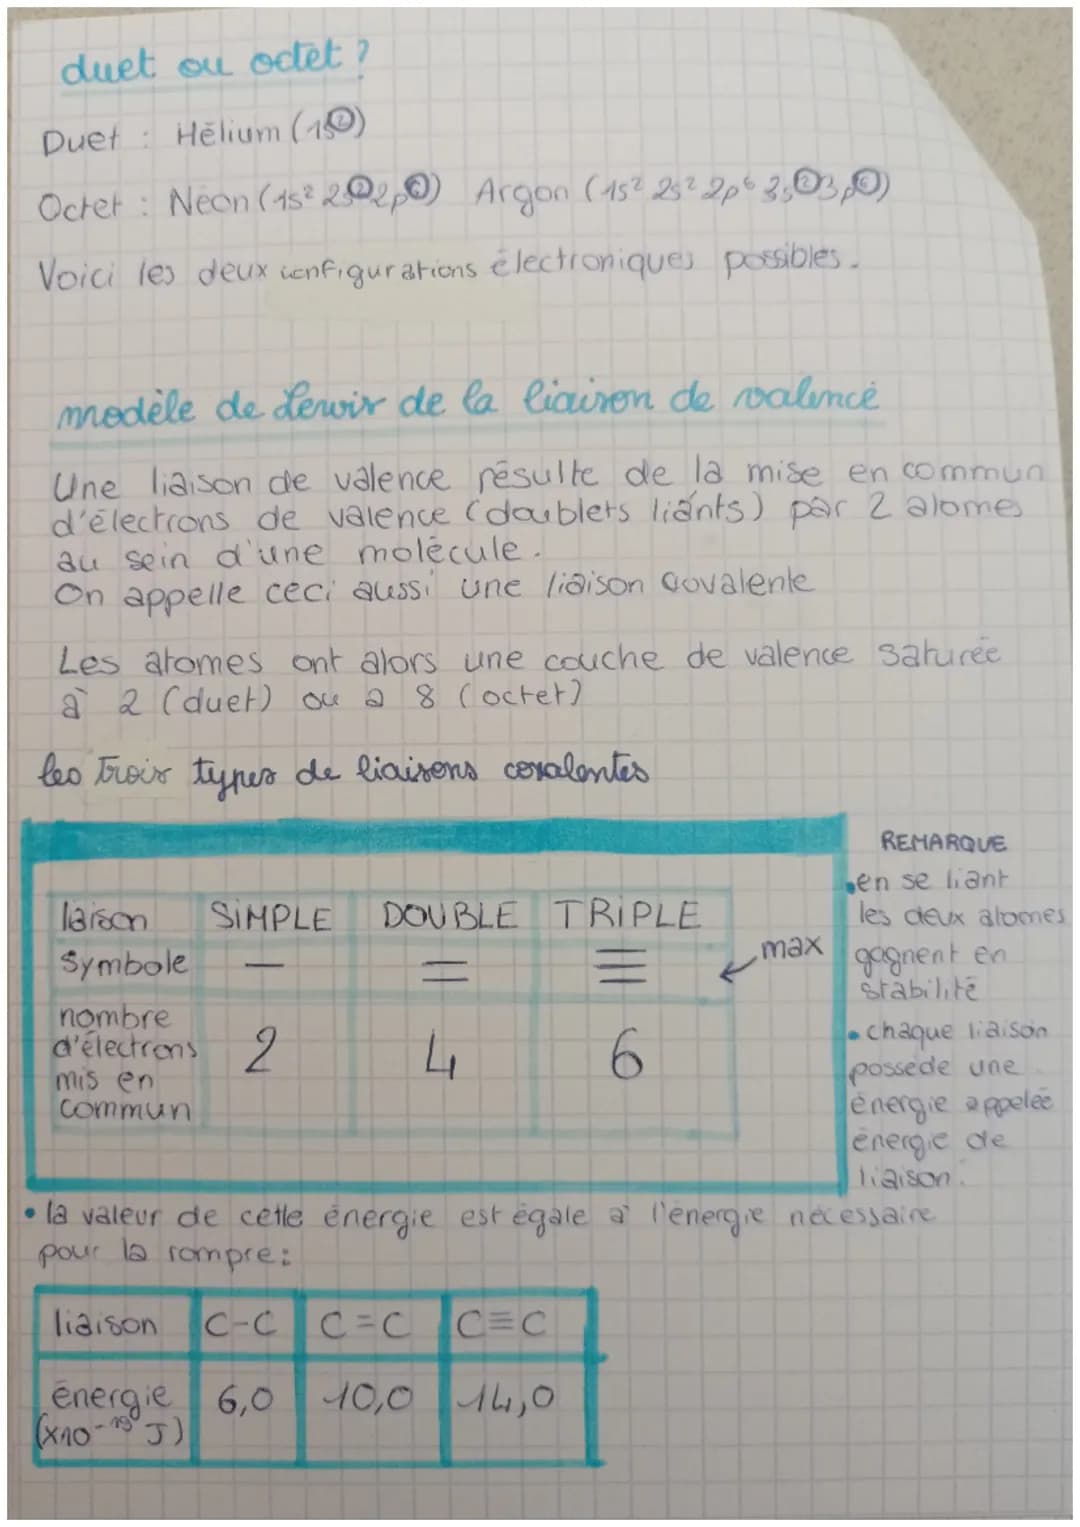 duet ou octet ?
Duet : Hélium (1s²)
Octet : Néon (1s² 2s² 2p⁶) Argon (1s² 2s² 2p⁶ 3s² 3p⁶)
Voici les deux configurations électroniques possibles.
modèle de Lewis de la liaison de valence
Une liaison de valence résulte de la mise en commun
d'électrons de valence (doublets liants) par 2 atomes
au sein d'une molécule.
On appelle ceci aussi une liaison covalente
Les atomes ont alors une couche de valence saturée
à 2 (duet) ou à 8 (octet)
les trois types de liaisons covalentes
laison SIMPLE DOUBLE TRIPLE
symbole — = ≡
max
nombre
d'électrons 2 4 6
mis en
commun
REMARQUE
• en se liant
les deux atomes
gagnent en
stabilité
• chaque liaison
possède une
énergie appelée
énergie de
liaison.
• la valeur de cette énergie est égale à l'énergie nécessaire
pour la rompre :
liaison C-C C=C C≡C
énergie 6,0 10,0 14,0
(x10⁻¹⁹ J)